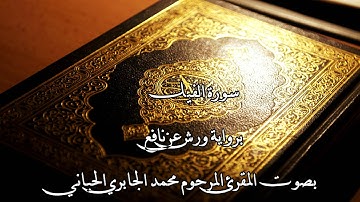 سورة الفيل
برواية ورش عن نافع
بصوت المقرئ المرحوم محمد الجابري الحياني